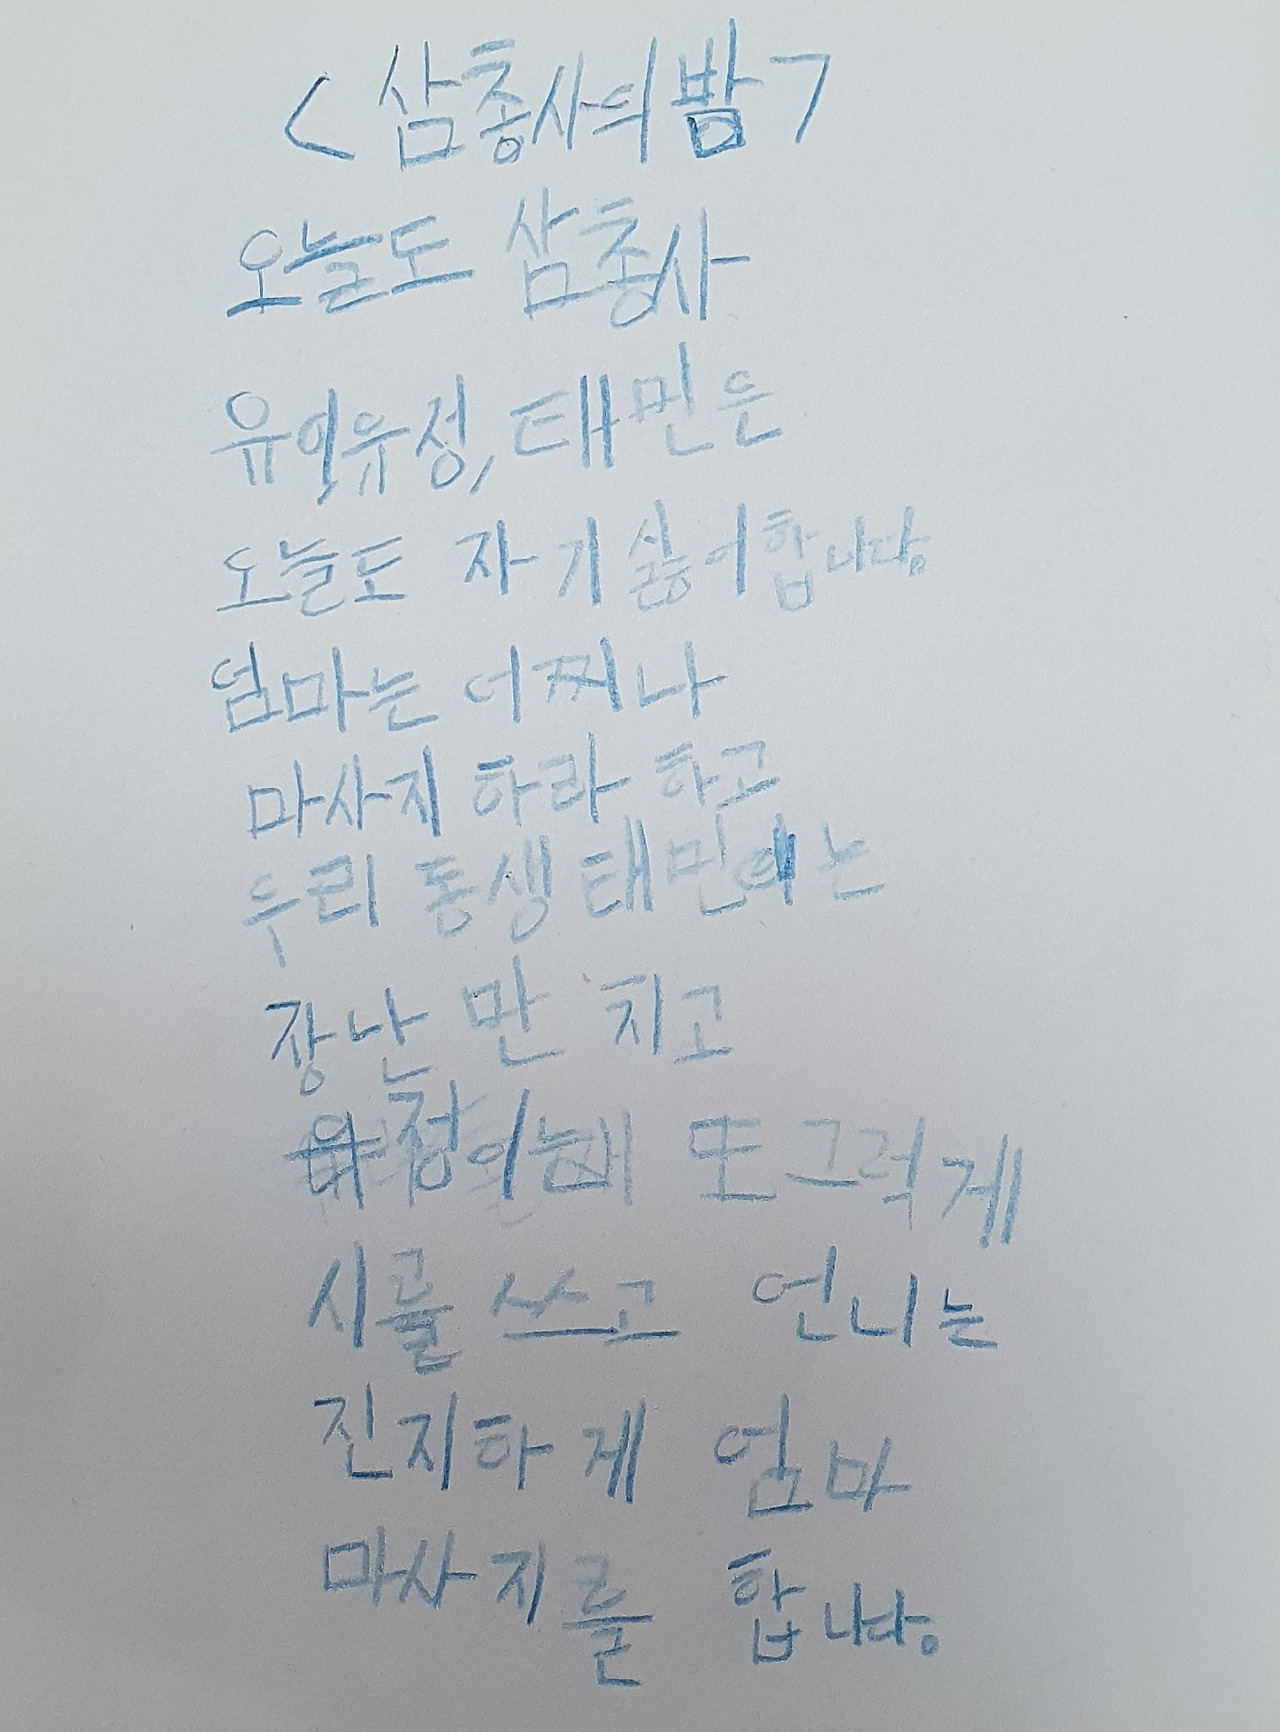 <삼총사의 밤>
오늘도 삼총사
유이유정, 태민은
오늘도 자기싫어합니다.
엄마는 어찌나
마사지 하라 하고
우리 동생 태민이는
장난 만 치고
유정이는 또 그럭게
시를 쓰고 언니는
진지하게 엄마
마사지를 합니다.